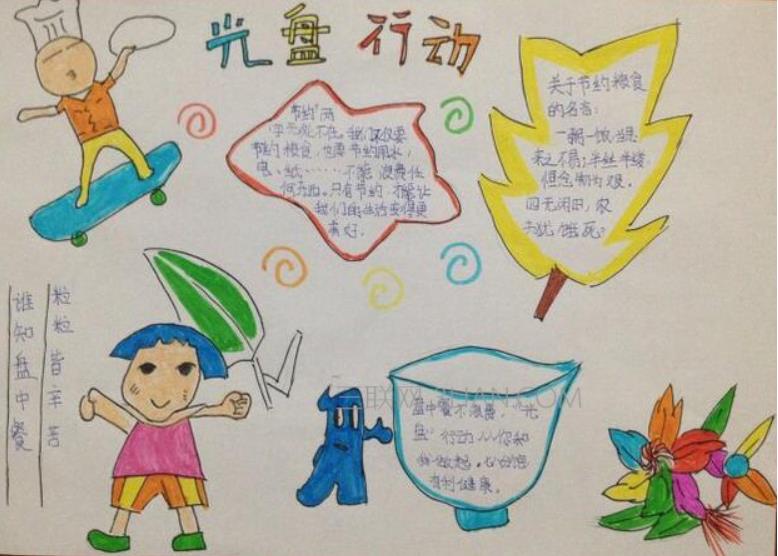 光盘行动
节约"两
字无处不在。我们不仅要
节约粮食,也要节约用水,
电、纸……不能浪费任
何东西。只有节约,才能让
我们的生活变得更
美好。
关于节约粮食
的名言:
一粥一饭,当思
来之不易;半丝半缕,
恒念物力维艰。
四无闲田,农
夫犹饿死。
谁知盘中餐
粒粒皆辛苦
盘中餐不浪费,"光
盘"行动从你和
我做起,
有利健康。